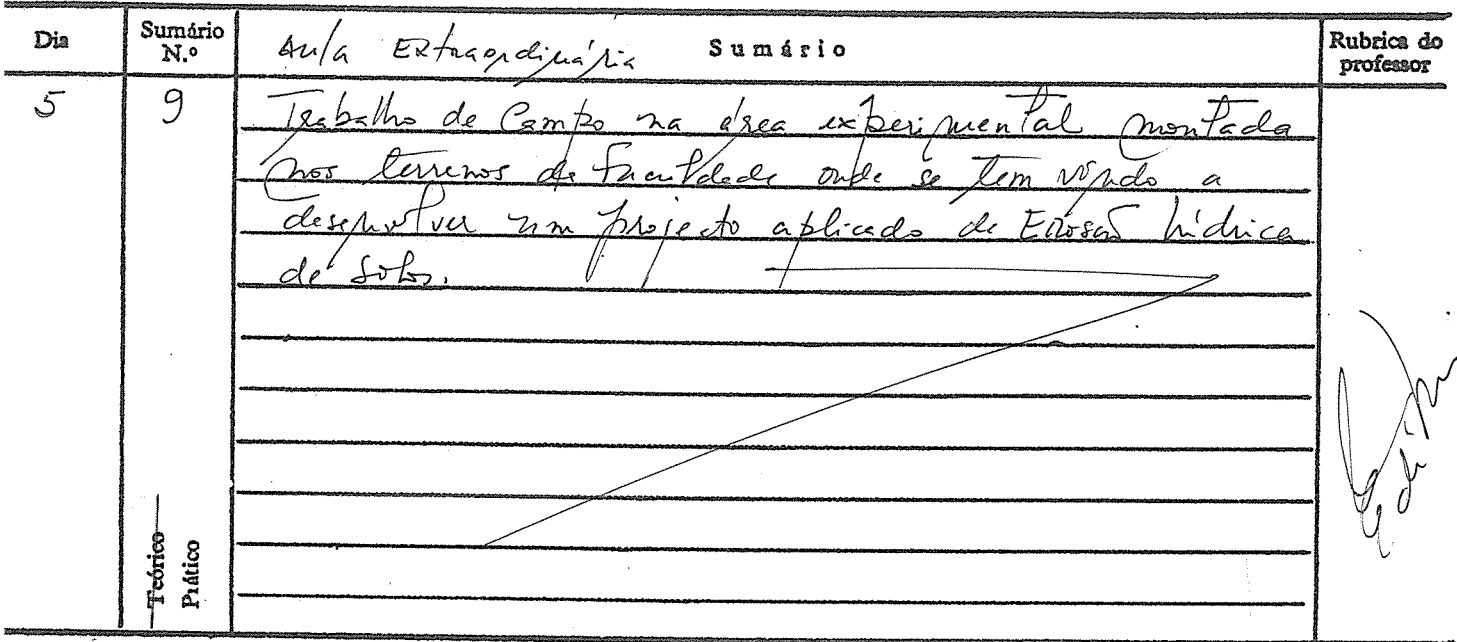 Dia
Sumário N.º
Aula Extraordinária Sumário
Rubrica do professor
5
9
Trabalho de Campo na área experimental montada
nos terrenos da Faculdade onde se tem vindo a
desenvolver um projecto aplicado de Erosão hídrica
de Solos.
Teórico
Prático